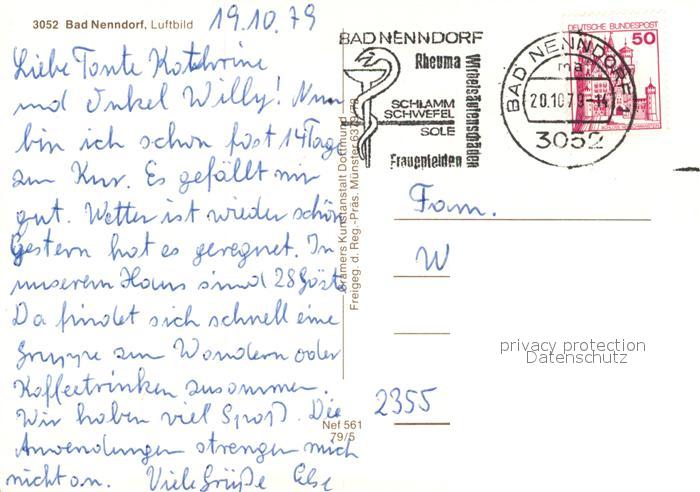 3052 Bad Nenndorf, Luftbild
19.10.79
Liebe Tante Kathrine
und Onkel Willy! Nun
bin ich schon fast 14 Tage
zur Kur. Es gefällt mir
gut. Wetter ist wieder schön
Gestern hat es geregnet. In
unserem Haus sind 28 Gäste
Da findet sich schnell eine
Gruppe zum Wandern oder
Kaffeetrinken zusammen.
Wir haben viel Spaß. Die
Anwendungen strengen mich
nicht an. Viele Grüße Else
Cramers Kunstanstalt Dortmund
Freigeg. d. Reg.-Präs. Münster 6378/78
Nef 561
79/5
BAD NENNDORF
Rheuma
Wirbelsäulenschäden
SCHLAMM
SCHWEFEL
SOLE
Frauenleiden
BAD NENNDORF 1
ma
20.10.79-14
3052
DEUTSCHE BUNDESPOST
50
Fam.
W
2355
privacy protection
Datenschutz